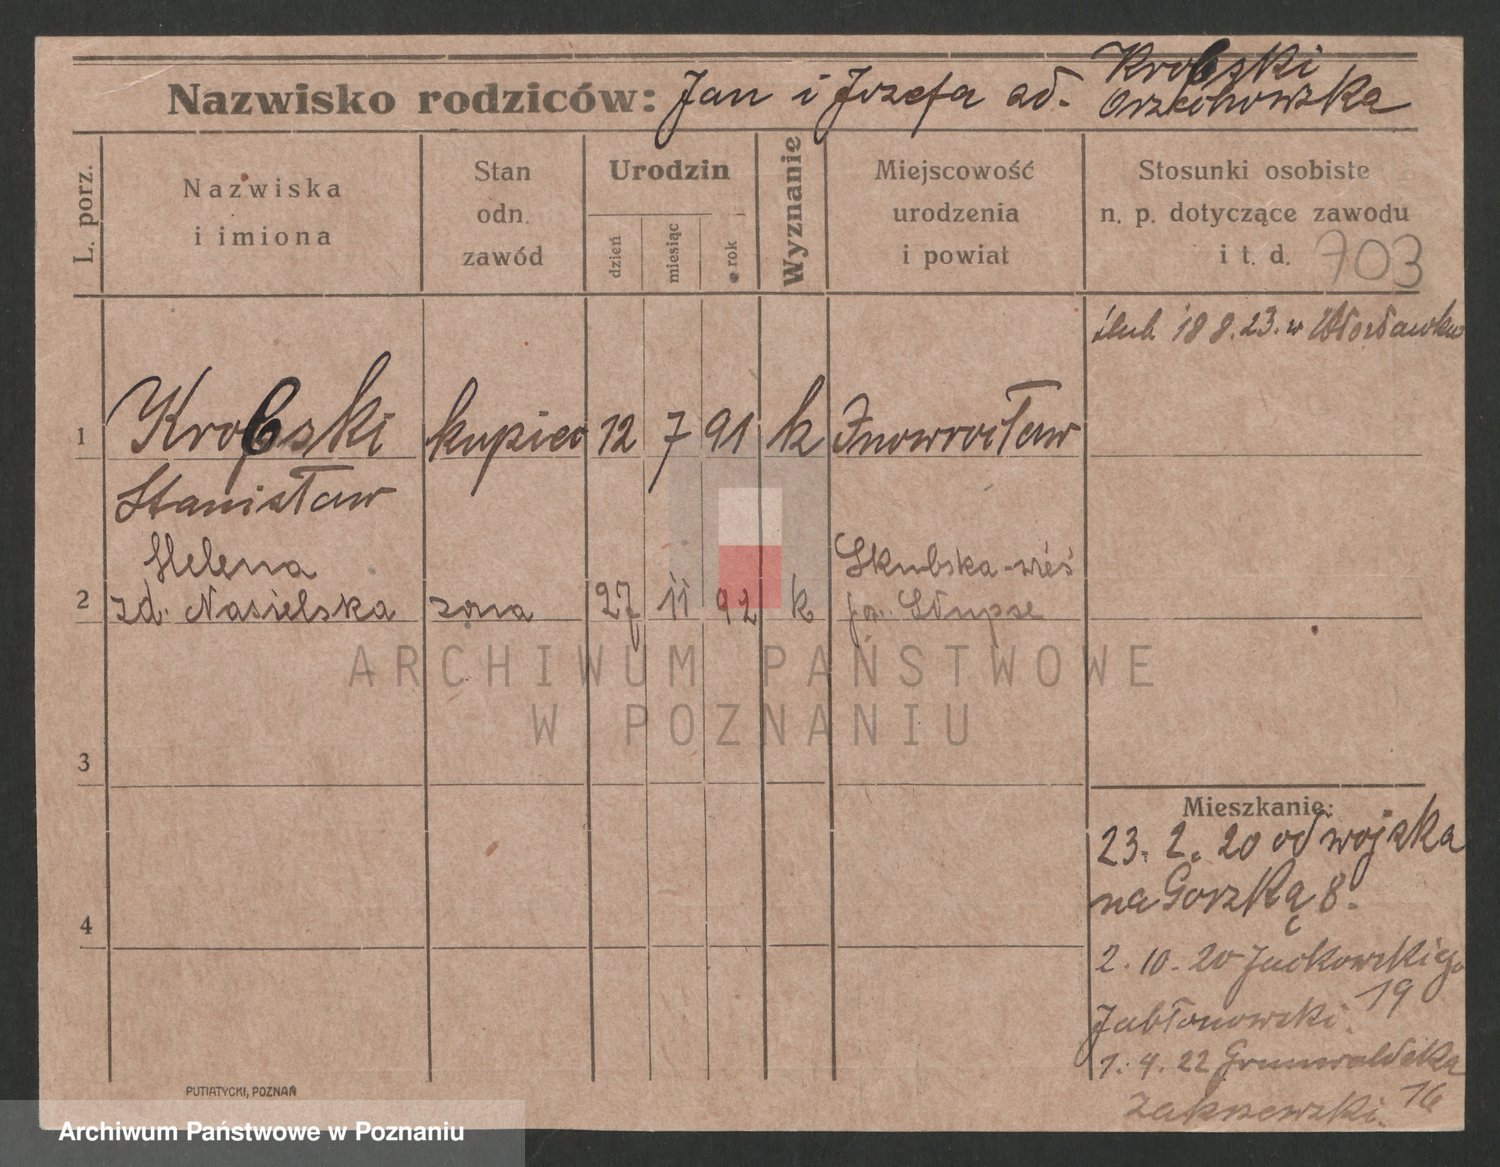 Nazwisko rodziców: Jan i Józefa zd. Krobski
Orzechowska
L. porz.
Nazwiska
i imiona
Stan
odn.
zawód
Urodzin
dzień
miesiąc
rok
Wyznanie
Miejscowość
urodzenia
i powiat
Stosunki osobiste
n. p. dotyczące zawodu
i t. d. 703
ślub 18 8. 23. w Włocławku
1 Krobski kupiec 12 7 91 k Inowrocław
Stanisław
Helena Skulska-wieś
2 zd. Nasielska żona 27 11 92 k pow. Słupse
ARCHIWUM PAŃSTWOWE
W POZNANIU
3
Mieszkanie:
23. 2. 20 od wojska
na Górzką 8.
4
2. 10. 20 Jackowskiego
19
Jabłonowski.
1. 4. 22 Grunwaldzka
16
Zakrzewski.
PUTIATYCKI, POZNAŃ
Archiwum Państwowe w Poznaniu